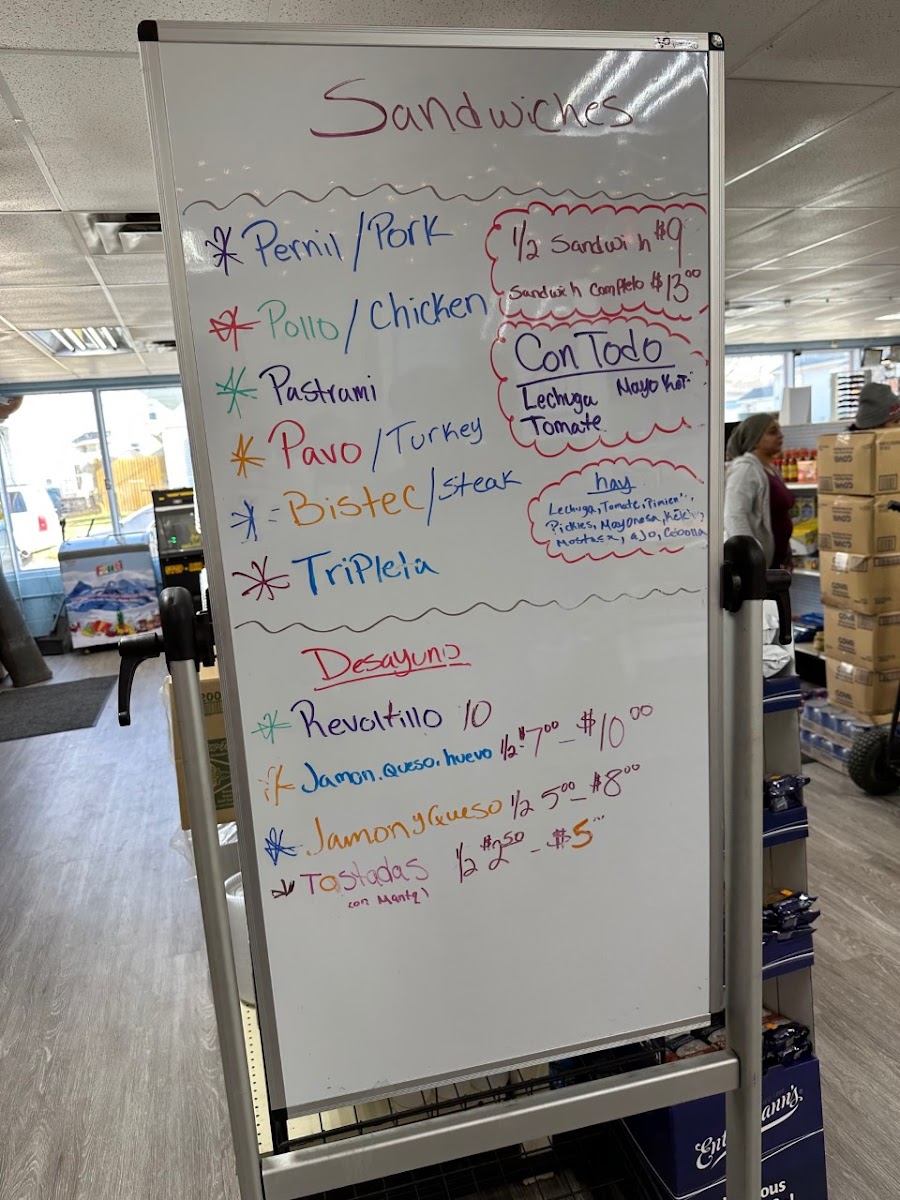 Sandwiches
Pernil/Pork
1/2 Sandwich $9
Sandwich Completo $13.00
Pollo/Chicken
Con Todo
Lechuga Mayo Ket
Tomate
Pastrami
Pavo/Turkey
Bistec/Steak
hay
Lechuga, Tomate, Pimien
Pickles, Mayonesa,
Mostaza, ajo, Cebolla
Tripleta
Desayuno
Revoltillo 10
Jamon.Queso.huevo 1/2 $7.00 - $10.00
Jamon y Queso 1/2 5.00 - $8.00
Tostadas 1/2 $2.50 - $5
con Manteq
GOYA
GOYA
GOYA
GOYA
GOYA
200